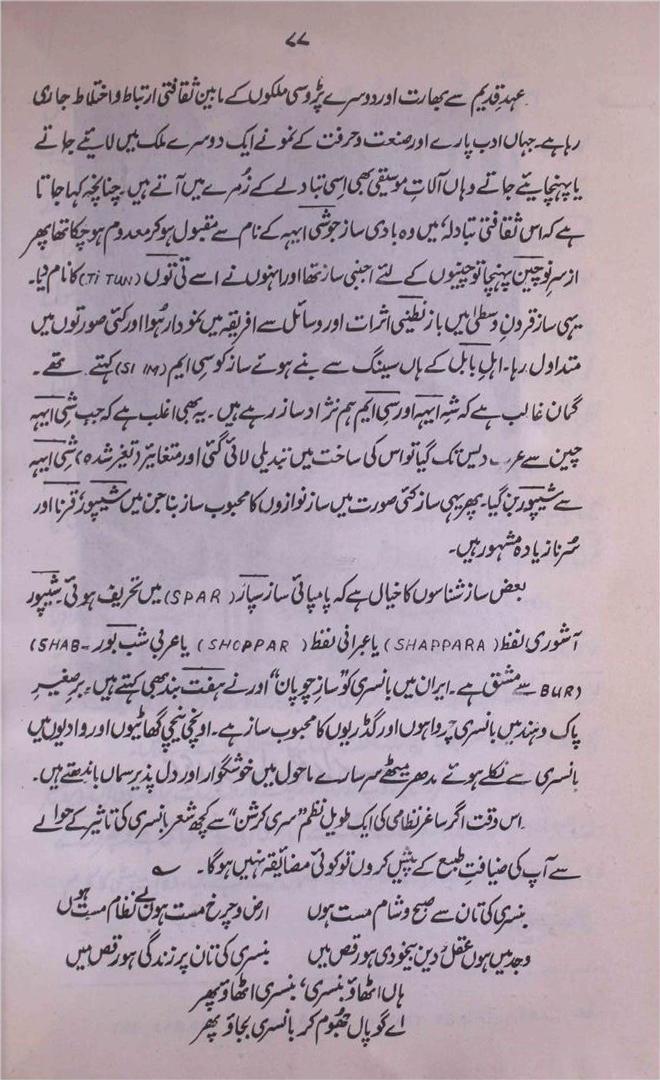 ۷۷
عہدِ قدیم سے بھارت اور دوسرے پڑوسی ملکوں کے مابین ثقافتی ارتباط و اختلاط جاری
رہا ہے۔ جہاں ادب پارے اور صنعت و حرفت کے نمونے ایک دوسرے ملک میں لائے جاتے
یا پہنچائے جاتے وہاں آلاتِ موسیقی بھی اِسی تبادلے کے زُمرے میں آتے ہیں۔ چنانچہ کہا جاتا
ہے کہ اس ثقافتی تبادلہ میں وہ بادی ساز جوشی ایہہ کے نام سے مقبول ہو کر معدوم ہو چکا تھا پھر
از سرِ نو چین پہنچا تو چینیوں کے لئے اجنبی ساز تھا اور انہوں نے اسے تی توں (Ti TUN) کا نام دیا۔
یہی ساز قرونِ وسطیٰ میں بازنطینی اثرات اور وسائل سے افریقہ میں نمودار ہُوا اور کئی صورتوں میں
متداول رہا۔ اہلِ بابل کے ہاں سینگ سے بنے ہوئے ساز کو سی ایم (SI IM) کہتے تھے۔
گمان غالب ہے کہ شِہ ایہہ اور سی ایم ہم نژاد ساز رہے ہیں۔ یہ بھی اغلب ہے کہ جب شی ایہہ
چین سے عرب دیس تک گیا تو اس کی ساخت میں تبدیلی لائی گئی اور متغائر (تغیّر شدہ) شی ایہہ
سے شیپور بن گیا۔ پھر یہی ساز کئی صورت میں ساز نوازوں کا محبوب ساز بنا جن میں شیپور، قرنا اور
سُرنا زیادہ مشہور ہیں۔
بعض ساز شناسوں کا خیال ہے کہ پامپائی ساز سپار (SPAR) میں تحریف ہوئی۔ شیپور
آشوری لفظ (SHAPPARA) یا عبرانی لفظ (SHOPPAR) یا عربی شب بور (SHAB-
BUR) سے مشتق ہے۔ ایران میں بانسری کو "سازِ چوپان" اور نے ہفت بند بھی کہتے ہیں۔ برِصغیرِ
پاک و ہند میں بانسری چرواہوں اور گڈریوں کا محبوب ساز ہے۔ اونچی نیچی گھاٹیوں اور وادیوں میں
بانسری سے نکلے ہوئے مدھر میٹھے سر سارے ماحول میں خوشگوار اور دل پذیر سماں باندھتے ہیں۔
اس وقت اگر ساغر نظامی کی ایک طویل نظم "سری کرشن" سے کچھ شعر بانسری کی تاثیر کے حوالے
سے آپ کی ضیافتِ طبع کے پیش کروں تو کوئی مضائقہ نہیں ہوگا۔
بنسری کی تان سے صبح و شام مست ہوں ارض و چرخ مست ہوں بے نظام مست ہوں
وجد میں ہوں عقل و دین بیخودی ہو رقص میں بنسری کی تان پر زندگی ہو رقص میں
ہاں اٹھاؤ بنسری، بنسری اٹھاؤ پھر
اے گوپال جھوم کر بانسری بجاؤ پھر